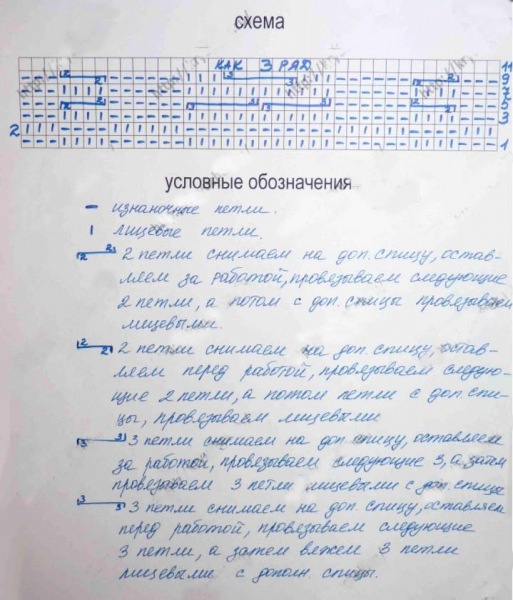 схема
КАК 3 РЯД
11
9
7
5
3
2
1
2 2 3 3 2 2
2 2 3 3 3 3 2 2
условные обозначения
– изнаночные петли.
ı лицевые петли.
2 2 2 петли снимаем на доп. спицу, остав-
ляем за работой, провязываем следующие
2 петли, а потом с доп. спицы провязываем
лицевыми.
2 2 2 петли снимаем на доп. спицу, остав-
ляем перед работой, провязываем следую-
щие 2 петли, а потом петли с доп. спи-
цы, провязываем лицевыми
3 3 3 петли снимаем на доп. спицу, оставляем
за работой, провязываем следующие 3, а затем
провязываем 3 петли лицевыми с доп. спицы
3 3 3 петли снимаем на доп. спицу, оставляем
перед работой, провязываем следующие
3 петли, а затем вяжем 3 петли
лицевыми с дополн. спицы.